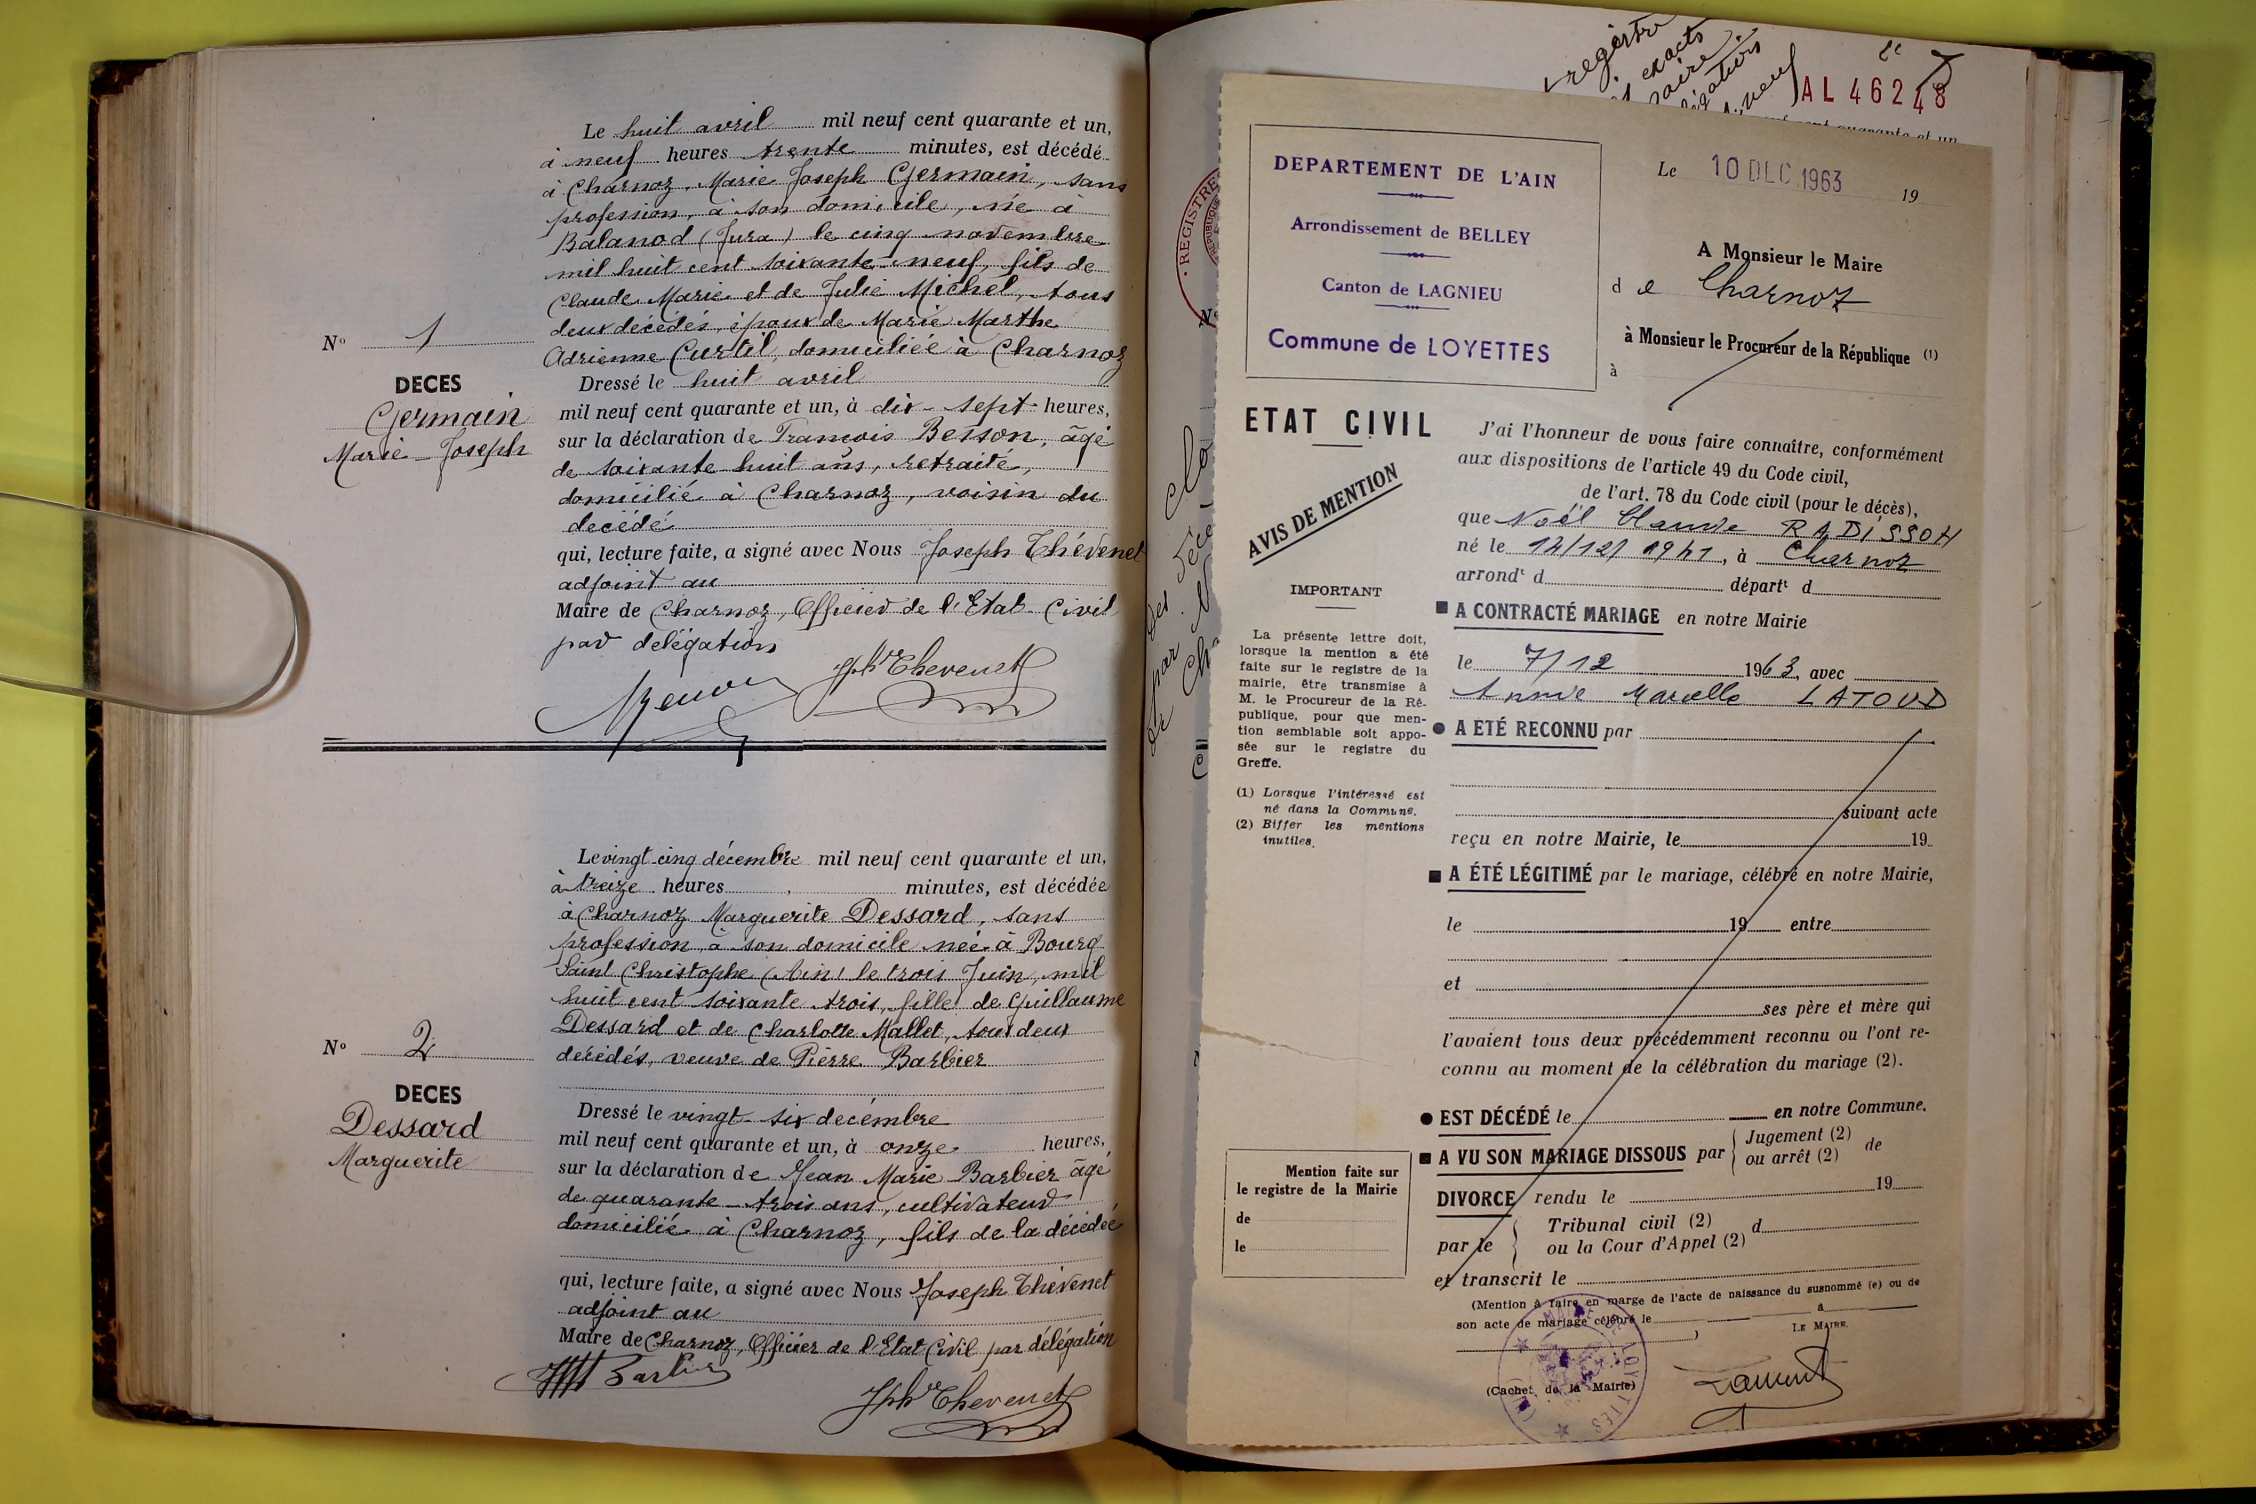 Le huit avril mil neuf cent quarante et un,
à neuf heures trente minutes, est décédé
à Charnoz, Marie Joseph Germain, sans
profession, à son domicile, né à
Balanod (Jura) le cinq novembre
mil huit cent soixante-neuf, fils de
Claude Marie et de Julie Michel, tous
deux décédés, époux de Marie Marthe
Adrienne Curtil, domiciliée à Charnoz
N° 1
DECES
Germain
Marie-Joseph
Dressé le huit avril
mil neuf cent quarante et un, à dix-sept heures,
sur la déclaration de François Besson, âgé
de soixante huit ans, retraité,
domicilié à Charnoz, voisin du
décédé
qui, lecture faite, a signé avec Nous Joseph Thévenet
adjoint au
Maire de Charnoz, Officier de l'Etat-Civil
par délégation
Jph Thevenet
Le vingt-cinq décembre mil neuf cent quarante et un,
à treize heures minutes, est décédée
à Charnoz Marguerite Dessard, sans
profession, à son domicile née à Bourg
Saint Christophe (Ain) le trois Juin, mil
huit cent soixante trois, fille de Guillaume
Dessard et de Charlotte Mallet, tous deux
décédés, veuve de Pierre Barbier
N° 2
DECES
Dessard
Marguerite
Dressé le vingt-six décembre
mil neuf cent quarante et un, à onze heures,
sur la déclaration de Jean Marie Barbier âgé
de quarante-trois ans, cultivateur
domicilié à Charnoz, fils de la décédée
qui, lecture faite, a signé avec Nous Joseph Thévenet
adjoint au
Maire de Charnoz, Officier de l'Etat Civil par délégation
Barbier
Jph Thevenet
registre
exacts
AL 46248
REGISTRE
DEPARTEMENT DE L'AIN
Arrondissement de BELLEY
Canton de LAGNIEU
Commune de LOYETTES
Le 10 DEC 1963 19
A Monsieur le Maire
de Charnoz
à Monsieur le Procureur de la République (1)
à
ETAT CIVIL
AVIS DE MENTION
IMPORTANT
La présente lettre doit,
lorsque la mention a été
faite sur le registre de la
mairie, être transmise à
M. le Procureur de la Ré-
publique, pour que men-
tion semblable soit appo-
sée sur le registre du
Greffe.
(1) Lorsque l'intéressé est
né dans la Commune.
(2) Biffer les mentions
inutiles.
Mention faite sur
le registre de la Mairie
de
le
J'ai l'honneur de vous faire connaître, conformément
aux dispositions de l'article 49 du Code civil,
de l'art. 78 du Code civil (pour le décès),
que Noël Claude RADISSON
né le 14/12/1941, à Charnoz
arrondt d départt d
A CONTRACTÉ MARIAGE en notre Mairie
le 7/12 1963, avec
Annie Marcelle LATOUD
A ÉTÉ RECONNU par
suivant acte
reçu en notre Mairie, le 19
A ÉTÉ LÉGITIMÉ par le mariage, célébré en notre Mairie,
le 19 entre
et
ses père et mère qui
l'avaient tous deux précédemment reconnu ou l'ont re-
connu au moment de la célébration du mariage (2).
EST DÉCÉDÉ le en notre Commune.
A VU SON MARIAGE DISSOUS par { Jugement (2) de
ou arrêt (2)
DIVORCE rendu le 19
par le } Tribunal civil (2) d
ou la Cour d'Appel (2)
et transcrit le
(Mention à faire en marge de l'acte de naissance du susnommé (e) ou de
son acte de mariage célébré le à
)
LE MAIRE,
(Cachet de la Mairie)
Laurent